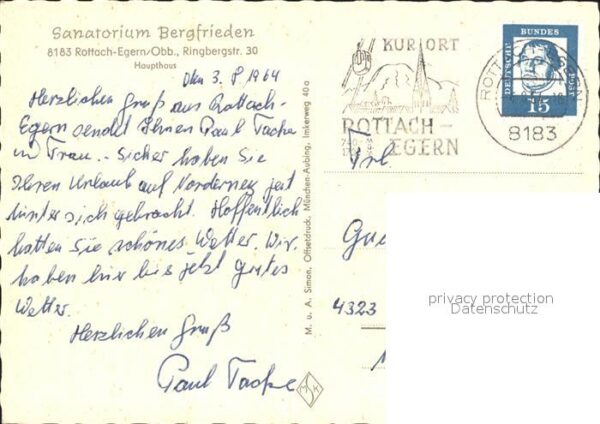 Sanatorium Bergfrieden
8183 Rottach-Egern/Obb., Ringbergstr. 30
Haupthaus
Den 3. 8 1964
Herzlichen Gruß aus Rottach-
Egern sendet Ihnen Paul Tacke
u Frau. Sicher haben Sie
Ihren Urlaub auf Norderney jetzt
hinter sich gebracht. Hoffentlich
hatten Sie schönes Wetter. Wir
haben hier bis jetzt gutes
Wetter.
Herzlichen Gruß
Paul Tacke
M. u. A. Simon, Offsetdruck, München-Aubing, Imkerweg 40a
KURORT
ROTTACH-
EGERN
DEUTSCHE
BUNDES
POST
15
8183
Frl.
4323
privacy protection
Datenschutz